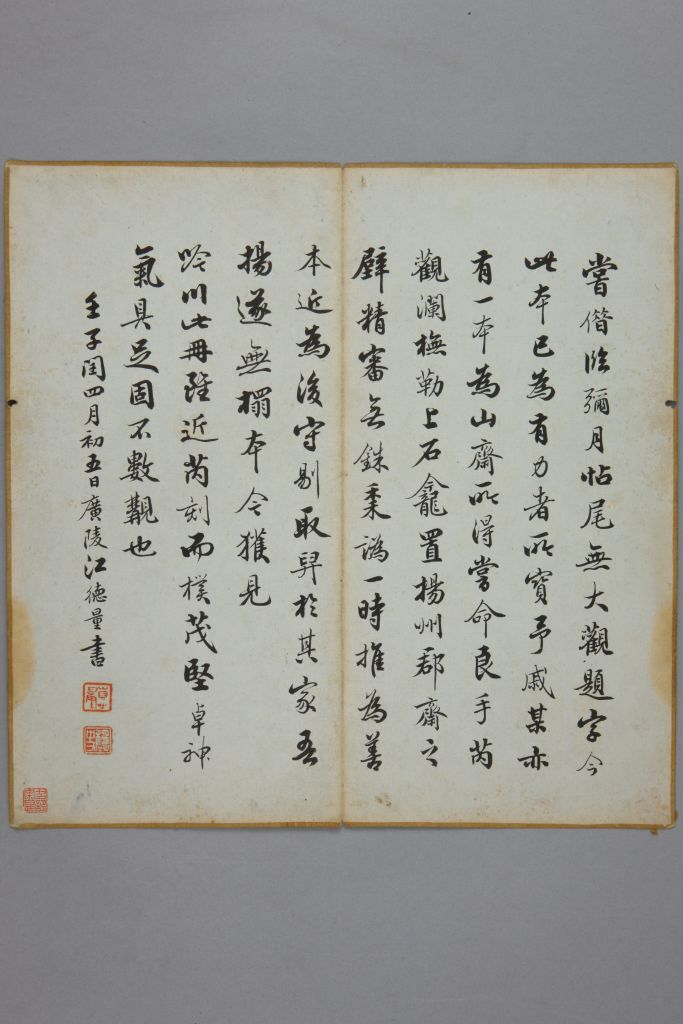 嘗借臨彌月帖尾無大觀題字今
此本已為有力者所寶予戚某亦
有一本為山齋所得嘗命良手芮
觀瀾橅勒上石龕置揚州郡齋之
壁精審無銖黍譌一時推為善
本近為後守剔取舁於其家吾
揚遂無搨本今獲見
吟川此冊雖近芮刻而樸茂堅卓神
氣具足固不數觀也
壬子閏四月初五日廣陵江德量書